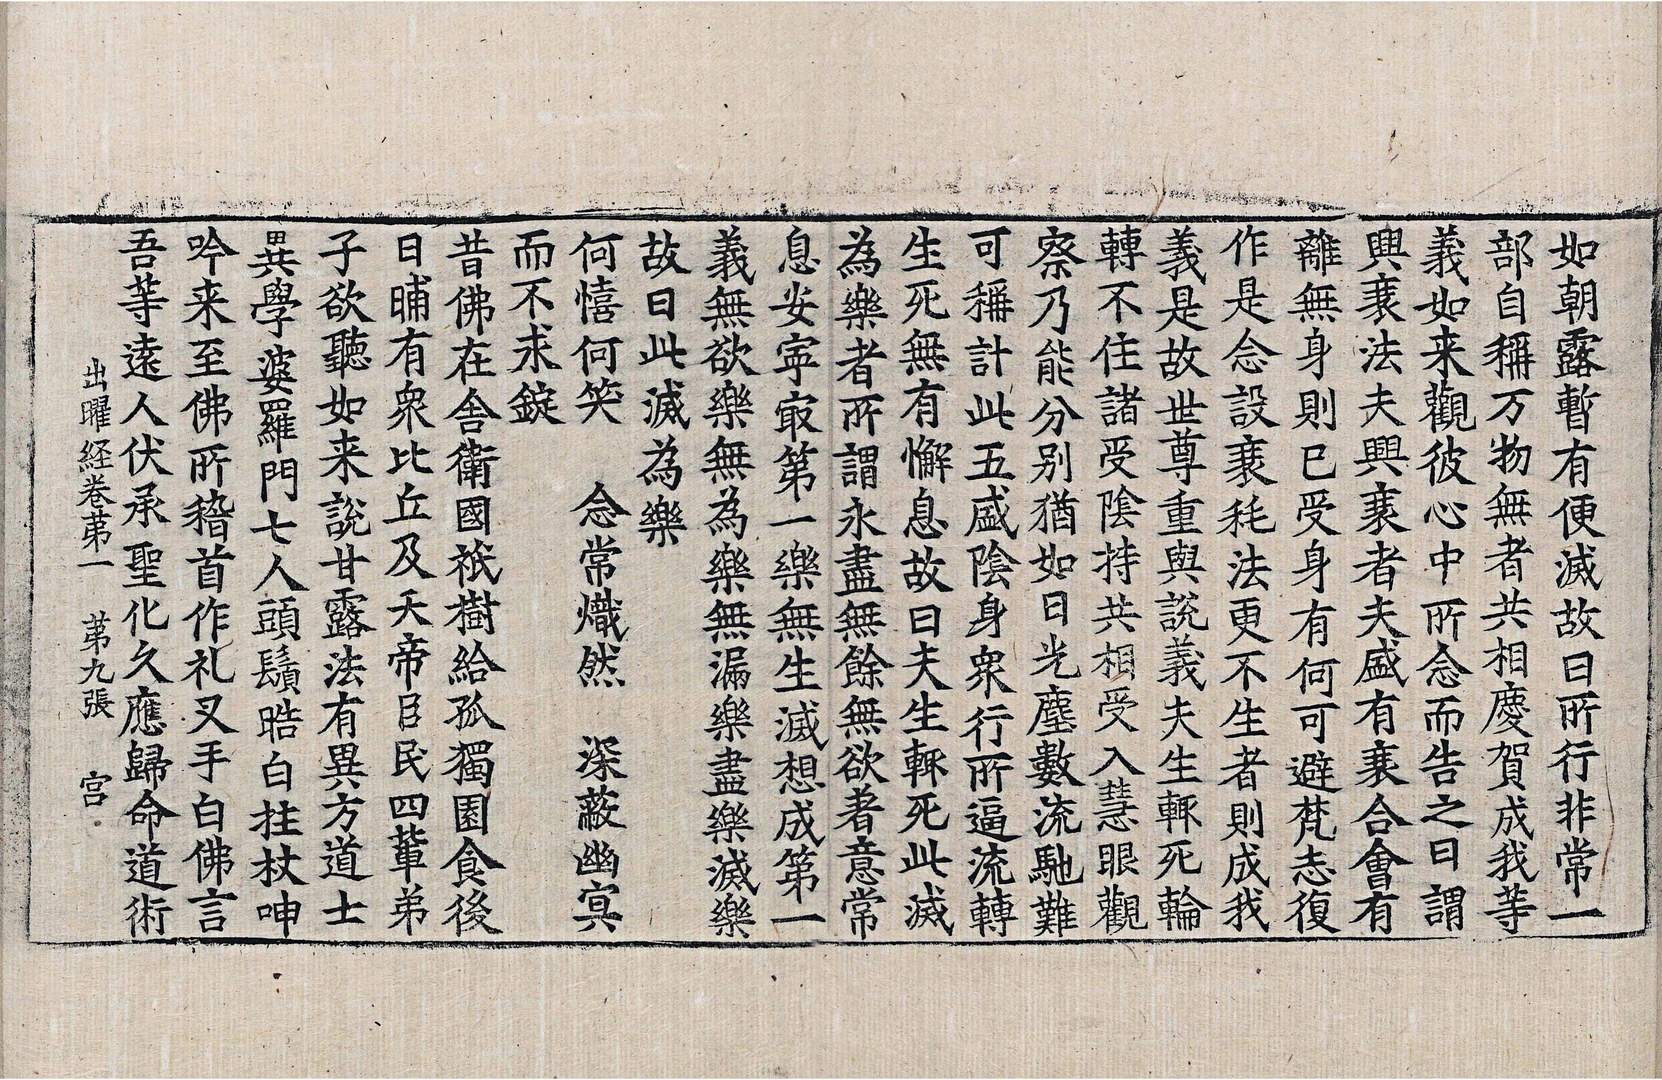 如朝露暫有便滅故曰所行非常一
部自稱万物無者共相慶賀成我等
義如来觀彼心中所念而告之曰謂
興衰法夫興衰者夫盛有衰合會有
離無身則已受身有何可避梵志復
作是念設衰耗法更不生者則成我
義是故世尊重與說義夫生輙死輪
轉不住諸受陰持共相受入慧眼觀
察乃能分别猶如日光塵數流馳難
可稱計此五盛陰身衆行所逼流轉
生死無有懈息故曰夫生輙死此滅
為樂者所謂永盡無餘無欲著意常
息安寜㝡第一樂無生滅想成第一
義無欲樂無為樂無漏樂盡樂滅樂
故曰此滅為樂
何憘何笑　念常熾然　深蔽幽㝠
而不求錠
昔佛在舎衛國祇樹給孤獨園食後
日晡有衆比丘及天帝臣民四輩弟
子欲聽如来說甘露法有異方道士
異學婆羅門七人頭鬚晧白拄杖呻
吟来至佛所稽首作礼叉手白佛言
吾等遠人伏承聖化久應歸命道術
出曜経卷苐一　苐九張　宫